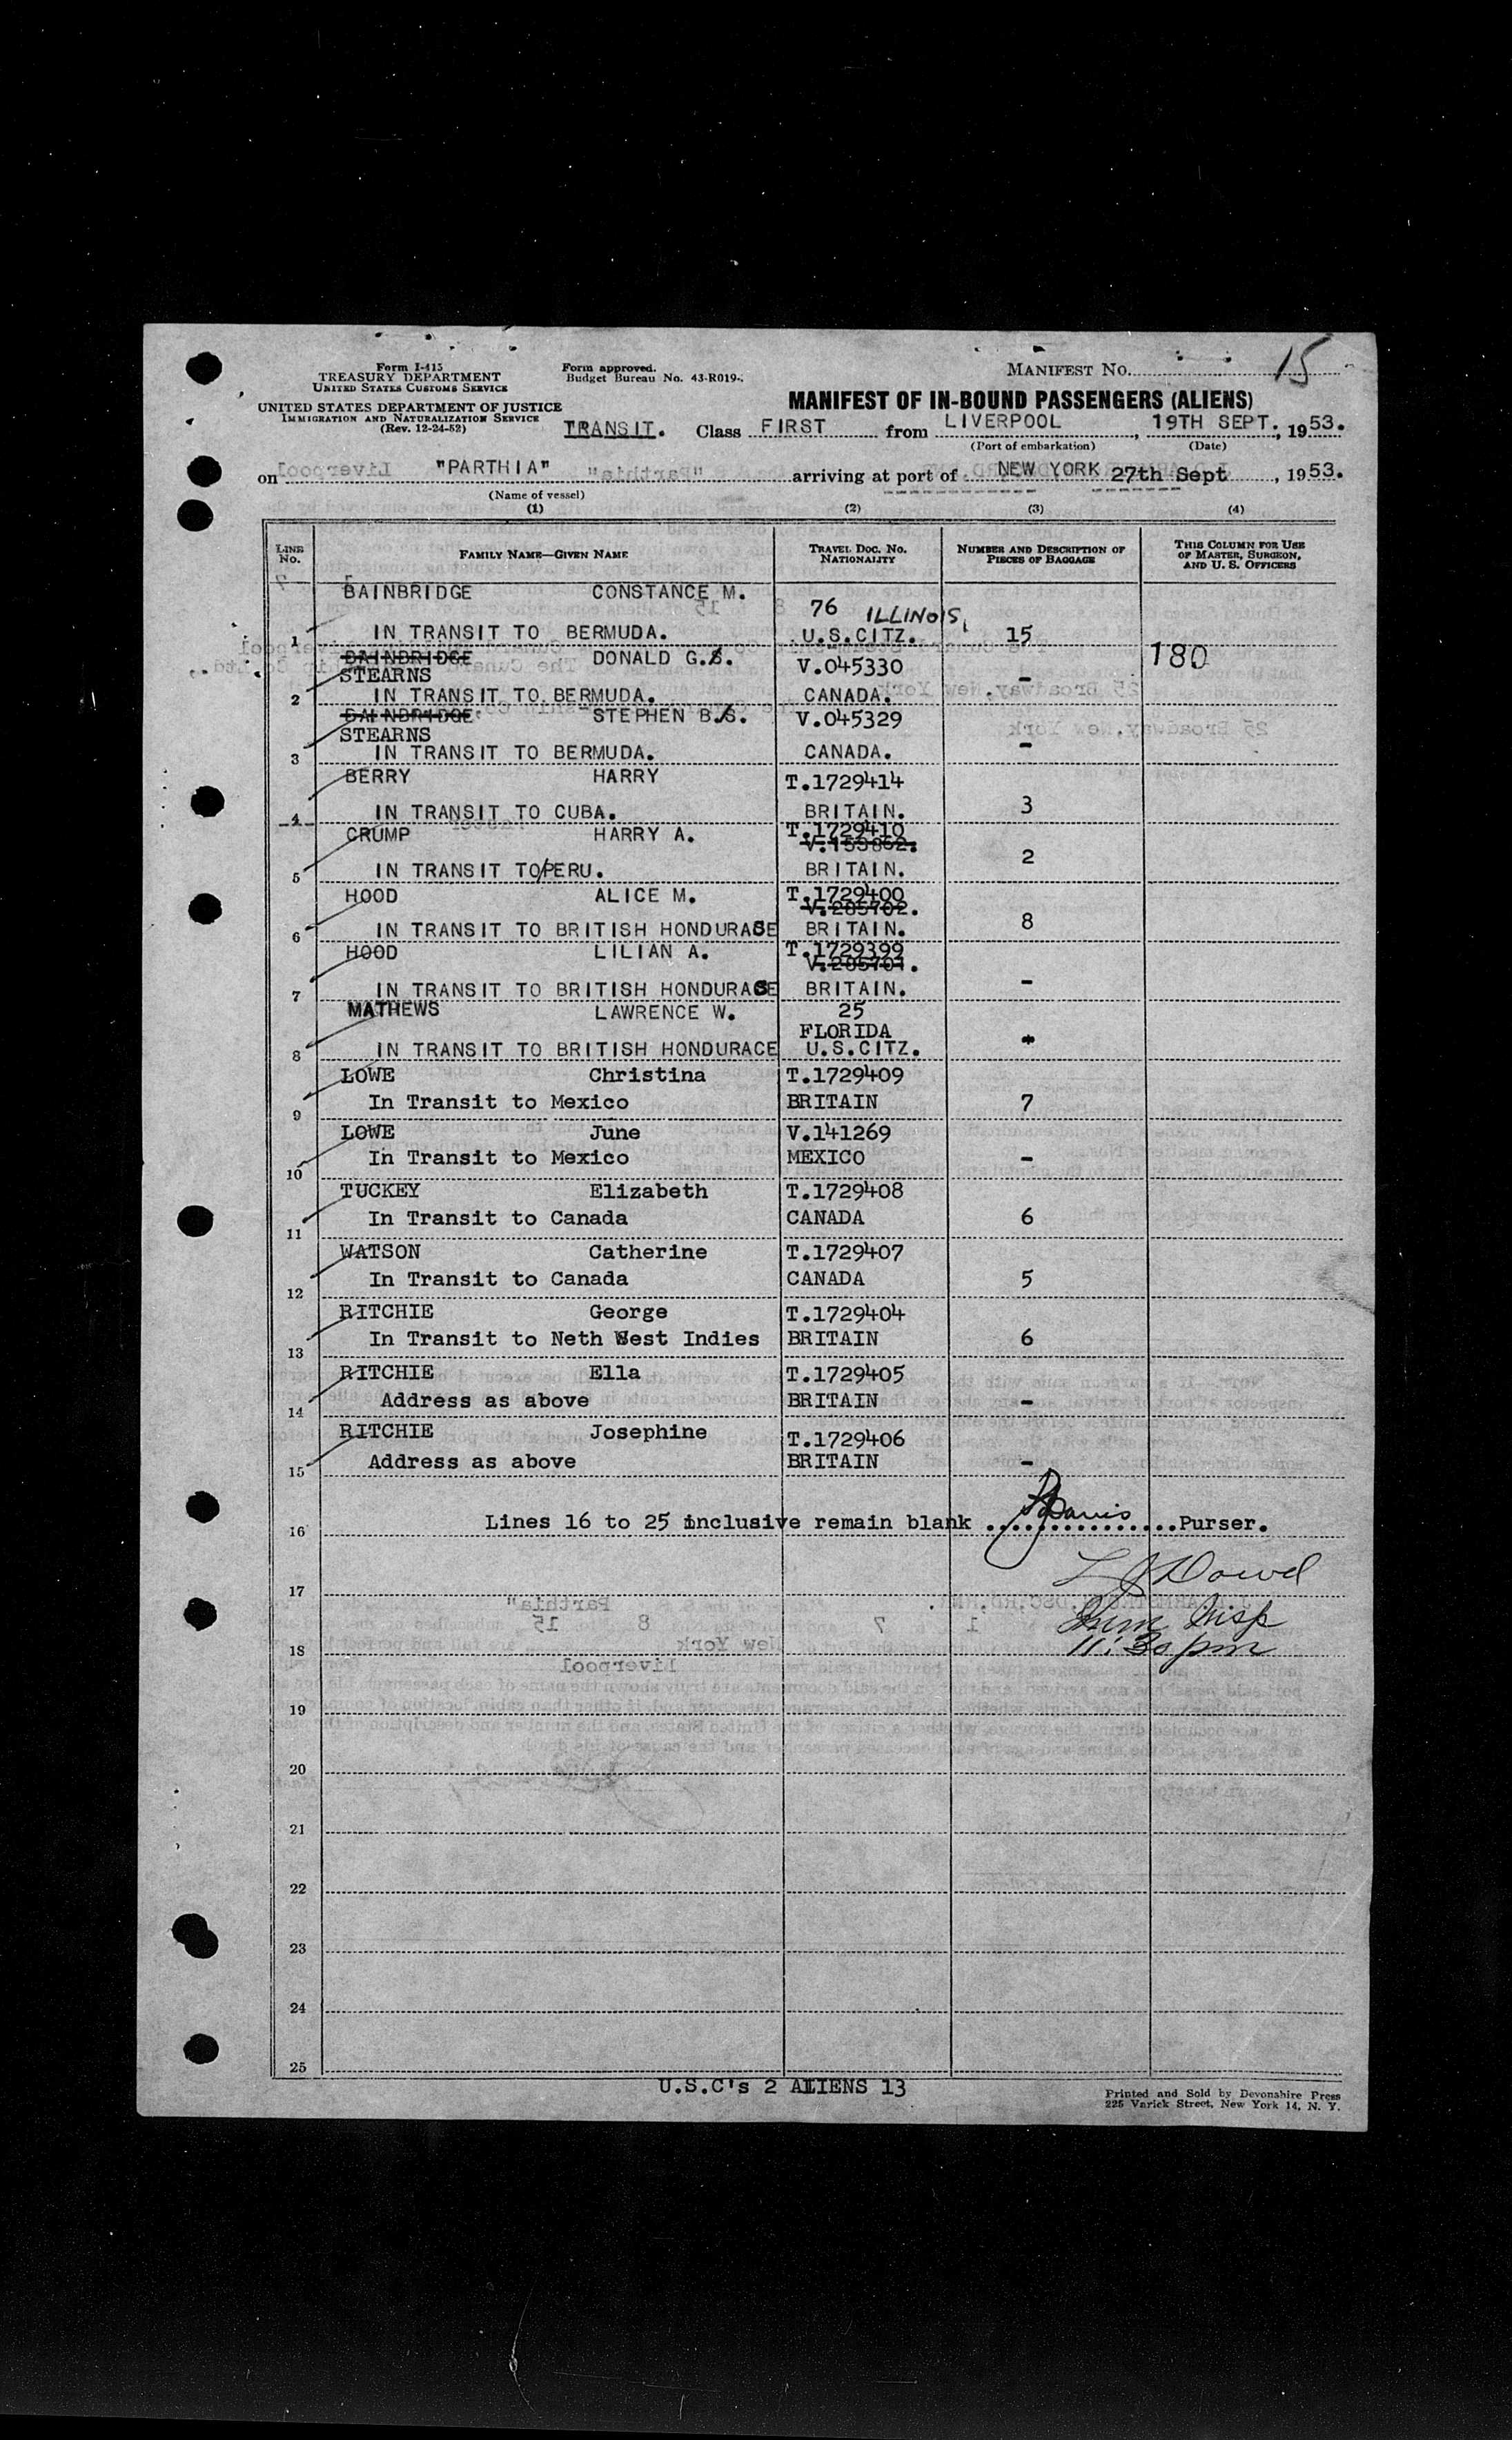 15
Form I-415
TREASURY DEPARTMENT
UNITED STATES CUSTOMS SERVICE
Form approved.
Budget Bureau No. 43-R019-
MANIFEST No.
UNITED STATES DEPARTMENT OF JUSTICE
IMMIGRATION AND NATURALIZATION SERVICE
(Rev. 12-24-52)
MANIFEST OF IN-BOUND PASSENGERS (ALIENS)
TRANSIT. Class FIRST from LIVERPOOL, 19TH SEPT., 1953.
(Port of embarkation) (Date)
on "PARTHIA" arriving at port of NEW YORK 27th Sept, 1953.
(Name of vessel)
(1) (2) (3) (4)
LINE No. FAMILY NAME—GIVEN NAME TRAVEL DOC. NO. NATIONALITY NUMBER AND DESCRIPTION OF PIECES OF BAGGAGE THIS COLUMN FOR USE OF MASTER, SURGEON, AND U. S. OFFICERS
BAINBRIDGE CONSTANCE M. 76 ILLINOIS,
1 IN TRANSIT TO BERMUDA. U.S.CITZ. 15
BAINBRIDGE DONALD G.S. V.045330 180
STEARNS
2 IN TRANSIT TO BERMUDA. CANADA. -
BAINBRIDGE STEPHEN B.S. V.045329
STEARNS
3 IN TRANSIT TO BERMUDA. CANADA. -
BERRY HARRY T.1729414
4 IN TRANSIT TO CUBA. BRITAIN. 3
CRUMP HARRY A. T.1729410
V.153862.
5 IN TRANSIT TO/PERU. BRITAIN. 2
HOOD ALICE M. T.1729400
V.285702.
6 IN TRANSIT TO BRITISH HONDURASE BRITAIN. 8
HOOD LILIAN A. T.1729399
V.285701.
7 IN TRANSIT TO BRITISH HONDURASE BRITAIN. -
MATHEWS LAWRENCE W. 25
FLORIDA
8 IN TRANSIT TO BRITISH HONDURACE U.S.CITZ.
LOWE Christina T.1729409
9 In Transit to Mexico BRITAIN 7
LOWE June V.141269
10 In Transit to Mexico MEXICO -
TUCKEY Elizabeth T.1729408
11 In Transit to Canada CANADA 6
WATSON Catherine T.1729407
12 In Transit to Canada CANADA 5
RITCHIE George T.1729404
13 In Transit to Neth West Indies BRITAIN 6
RITCHIE Ella T.1729405
14 Address as above BRITAIN -
RITCHIE Josephine T.1729406
15 Address as above BRITAIN -
16 Lines 16 to 25 inclusive remain blank ............... Purser.
Davis
L J Dowd
17
Imm Insp
18 11:30 pm
19
20
21
22
23
24
25
U.S.C's 2 ALIENS 13
Printed and Sold by Devonshire Press
225 Varick Street, New York 14, N. Y.